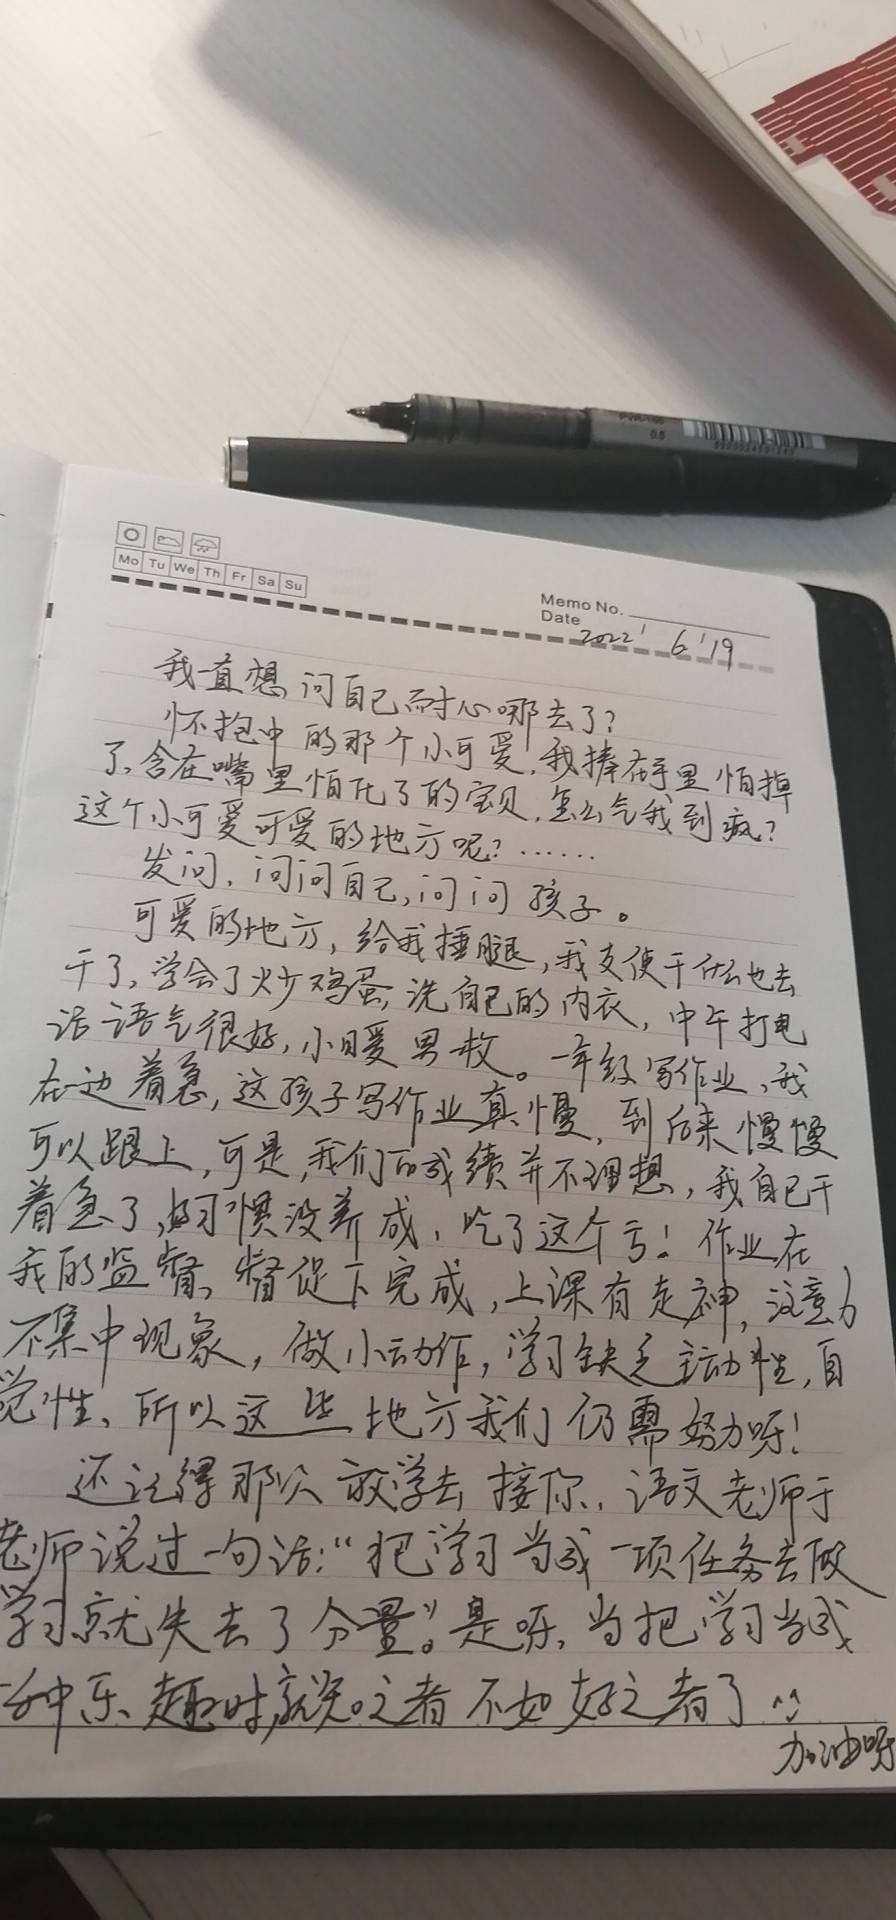 0.5
Mo Tu We Th Fr Sa Su
Memo No.
Date 2022' 6'19
我一直想问自己耐心哪去了?
怀抱中的那个小可爱,我捧在手里怕掉
了,含在嘴里怕化了的宝贝,怎么气我到疯?
这个小可爱可爱的地方呢?……
发问,问问自己,问问孩子。
可爱的地方,给我捶腿,我支使干什么也去
干了,学会了炒鸡蛋,洗自己的内衣,中午打电
话语气很好,小暖男一枚。一年级写作业,我
在一边着急,这孩子写作业真慢,到后来慢慢
可以跟上,可是,我们的成绩并不理想,我自己干
着急了,好习惯没养成,吃了这个亏!作业在
我的监督、督促下完成,上课有走神,注意力
不集中现象,做小动作,学习缺乏主动性,自
觉性、所以这些地方我们仍需努力呀!
还记得那次放学去接你,语文老师于
老师说过一句话:“把学习当成一项任务去做
学习就失去了分量”。是呀,当把学习当成
一种乐趣时,就知之者不如好之者了
加油呀